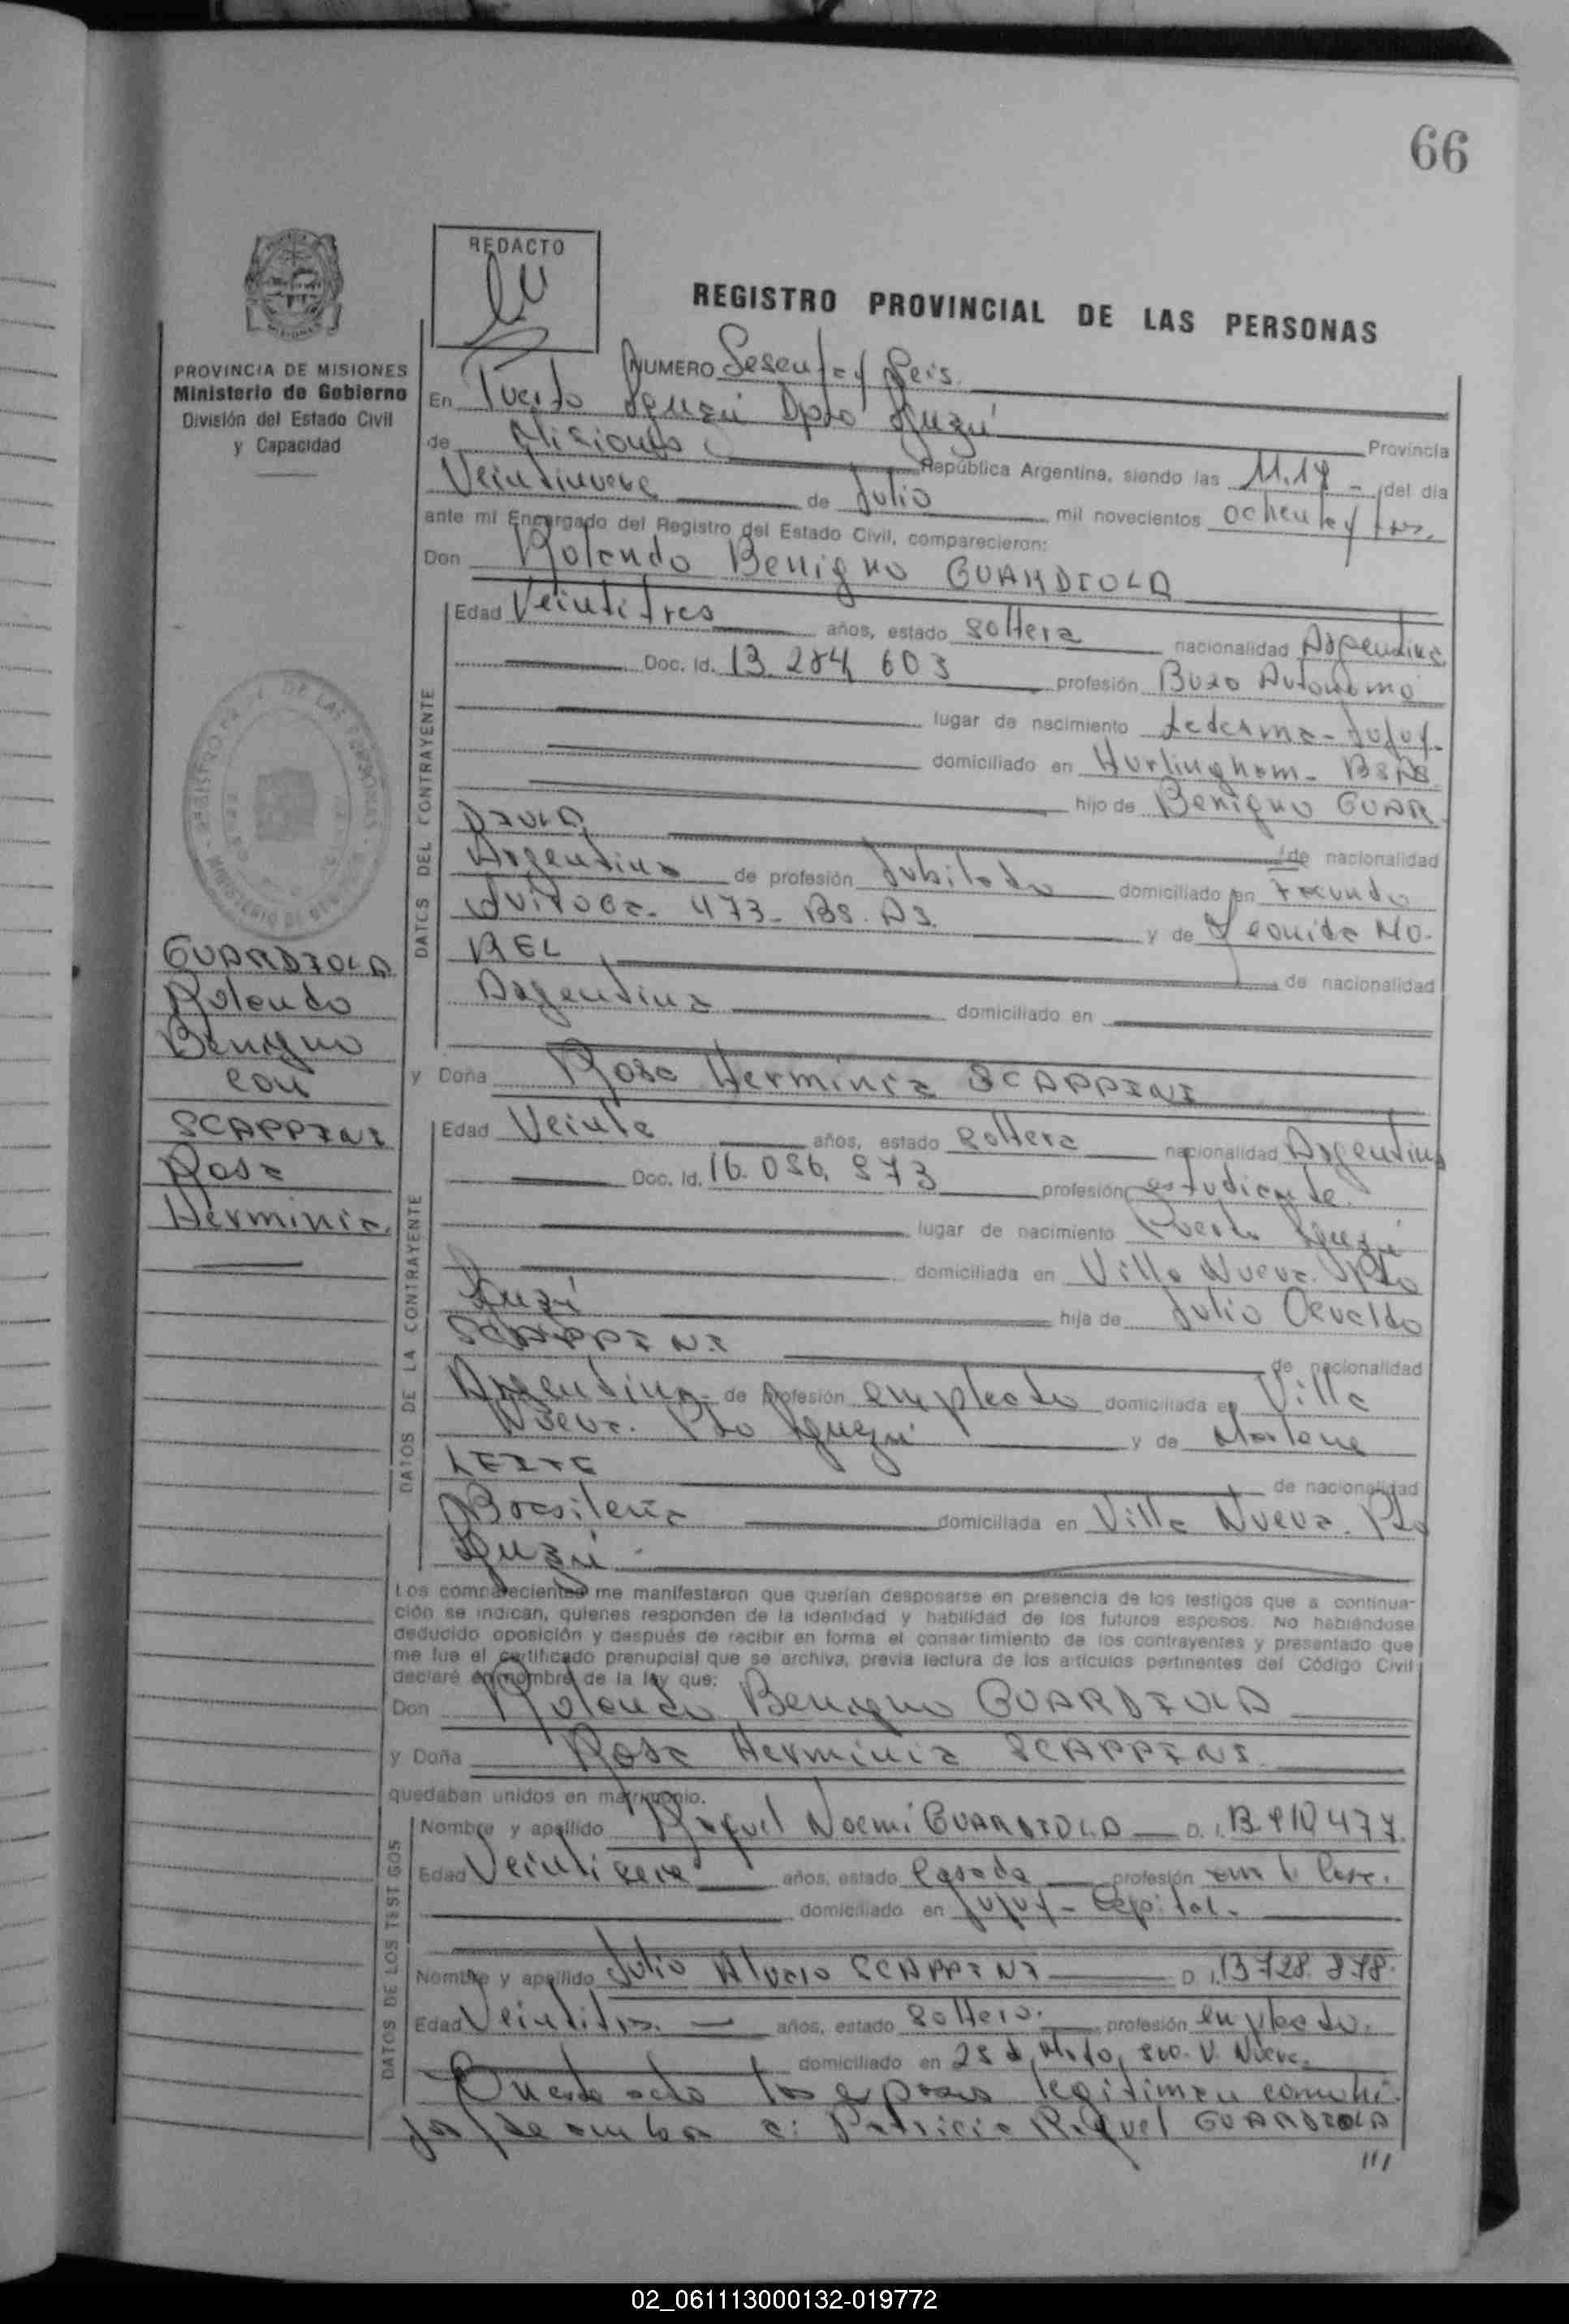 66
REDACTO
REGISTRO PROVINCIAL DE LAS PERSONAS
PROVINCIA DE MISIONES
Ministerio de Gobierno
División del Estado Civil
y Capacidad
NUMERO Sesenta y Seis
En Puerto Iguazú Dpto Iguazú
de Misiones Provincia
República Argentina, siendo las 11.18 del día
Veintinueve de Julio mil novecientos ochenta y tres.
ante mi Encargado del Registro del Estado Civil, comparecieron:
Don Rolando Benigno GUARDIOLA
DATOS DEL CONTRAYENTE
Edad Veintitres años, estado soltera nacionalidad Argentina
Doc. Id. 13.284.603 profesión Buzo Autonomo
lugar de nacimiento Ledesma - Jujuy.
domiciliado en Hurlingham - Bs As
hijo de Benigno GUAR
DIOLA de nacionalidad
Argentina de profesión Jubilado domiciliado en Facundo
Quiroga - 473 - Bs. As. y de Leonida MO-
REL de nacionalidad
Argentina domiciliado en
GUARDIOLA
Rolando
Benigno
con
SCAPPINI
Rosa
Herminia
y Doña Rosa Herminia SCAPPINI
DATOS DE LA CONTRAYENTE
Edad Veinte años, estado soltera nacionalidad Argentina
Doc. Id. 16.086.973 profesión estudiante.
lugar de nacimiento Puerto Iguazú
domiciliada en Villa Nueva. Pto
Iguazú hija de Julio Osvaldo
SCAPPINI de nacionalidad
Argentina de profesión empleado domiciliada en Villa
Nueva. Pto Iguazú y de Marlene
LEITE de nacionalidad
Brasileña domiciliada en Villa Nueva. Pto
Iguazú.
Los comparecientes me manifestaron que querían desposarse en presencia de los testigos que a continua-
ción se indican, quienes responden de la identidad y habilidad de los futuros esposos. No habiéndose
deducido oposición y después de recibir en forma el consentimiento de los contrayentes y presentado que
me fue el certificado prenupcial que se archiva, previa lectura de los artículos pertinentes del Código Civil
declaré en nombre de la ley que:
Don Rolando Benigno GUARDIOLA
y Doña Rosa Herminia SCAPPINI
quedaban unidos en matrimonio.
DATOS DE LOS TESTIGOS
Nombre y apellido Raquel Noemi GUARDIOLA D. I.
Edad años, estado Casada profesión
domiciliado en Jujuy - Capital.
Nombre y apellido Julio SCAPPINI D. I. 13.728.878.
Edad Veintitres años, estado soltero. profesión empleado.
domiciliado en 25 d. Mayo, V. Nueva.
En este acto los esposos legitiman como hi-
ja de ambos a: Patricia Raquel GUARDIOLA
///
02_061113000132-019772